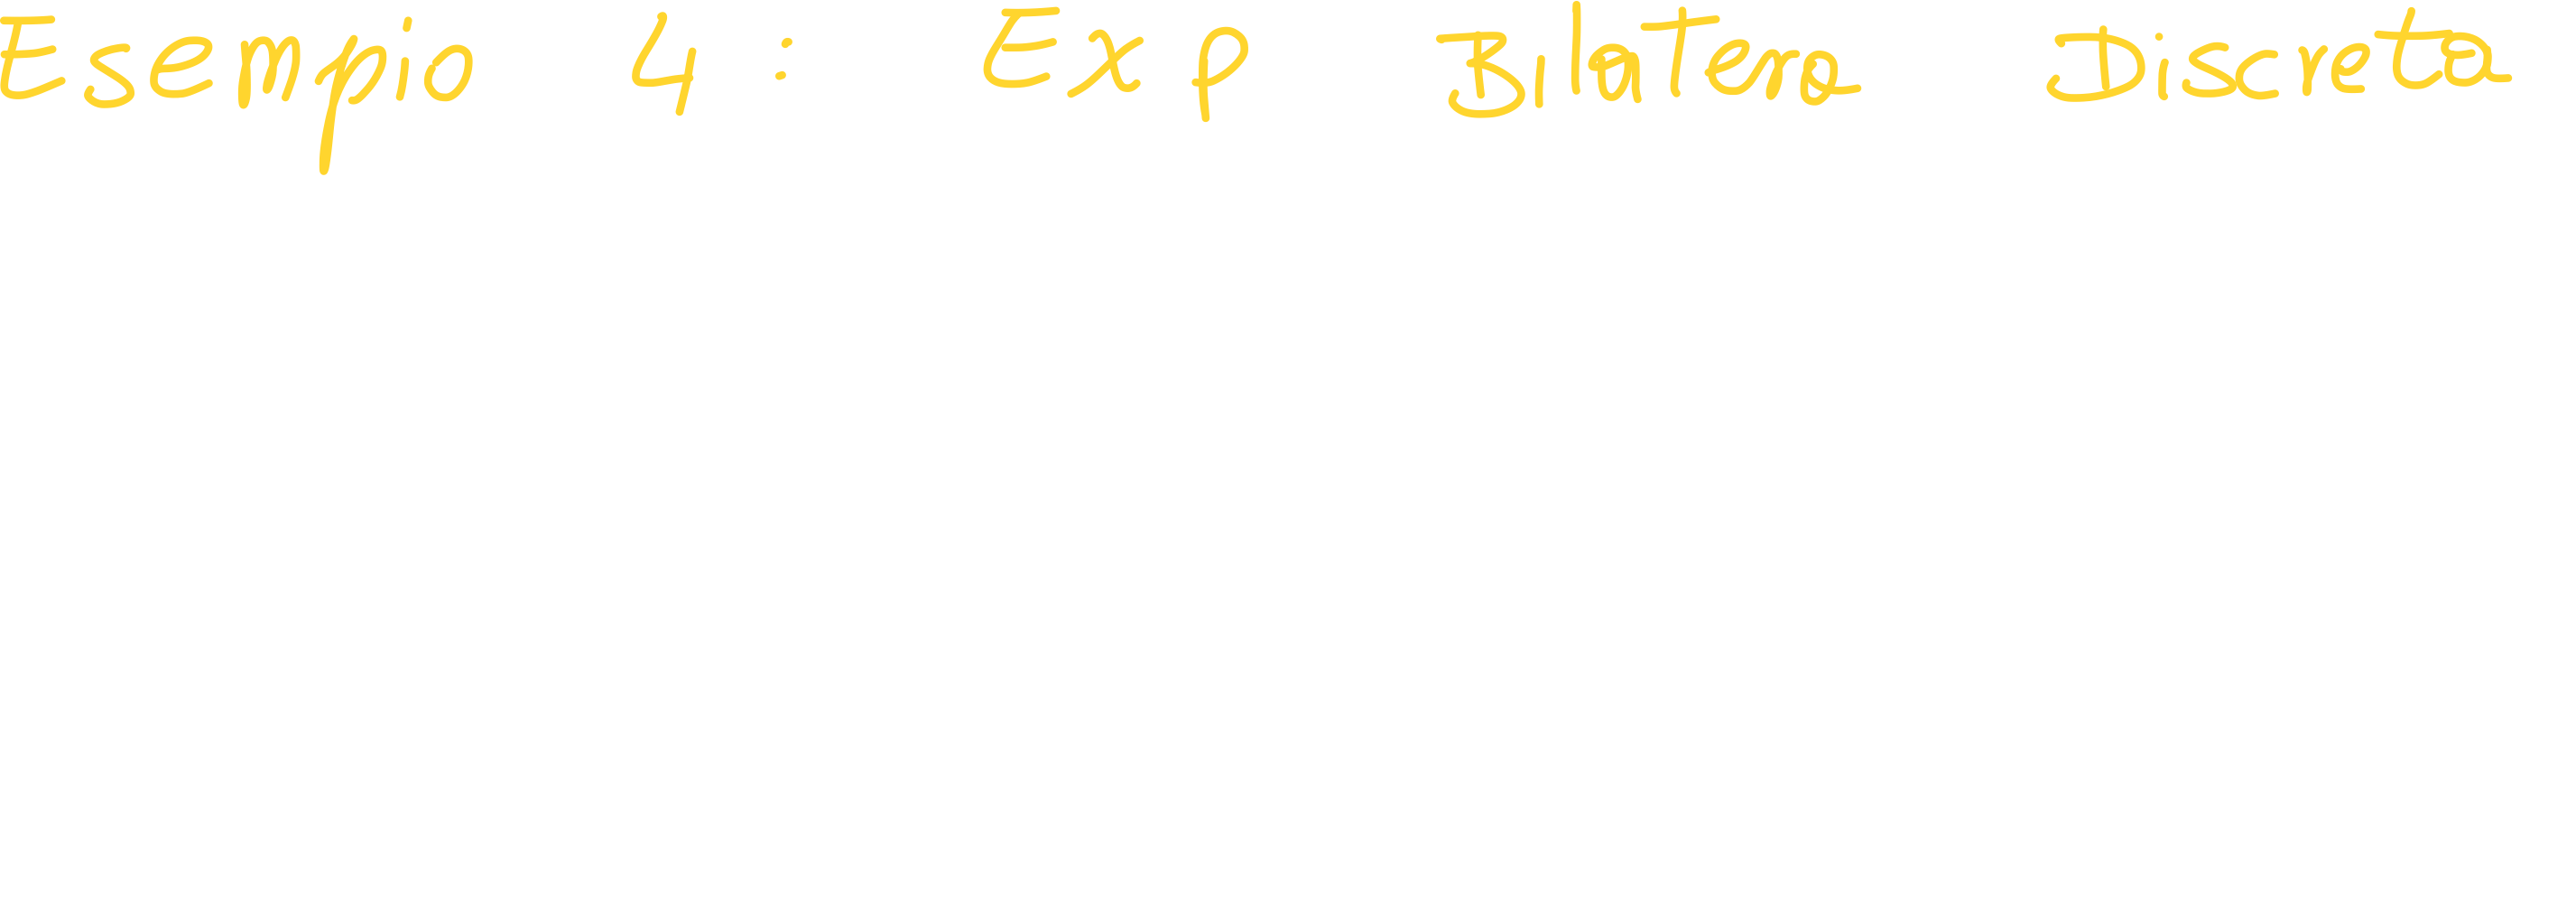 Esempio 4 : Exp Bilatera Discreta